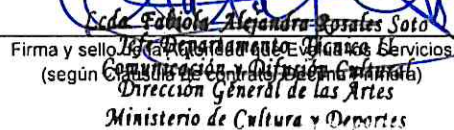 Lcda. Fabiola Alejandra Rosales Soto
Firma y sello Servicios
Departamento
(según Contrato
Comunicación y Difusión Cultural
Dirección General de las Artes
Ministerio de Cultura y Deportes